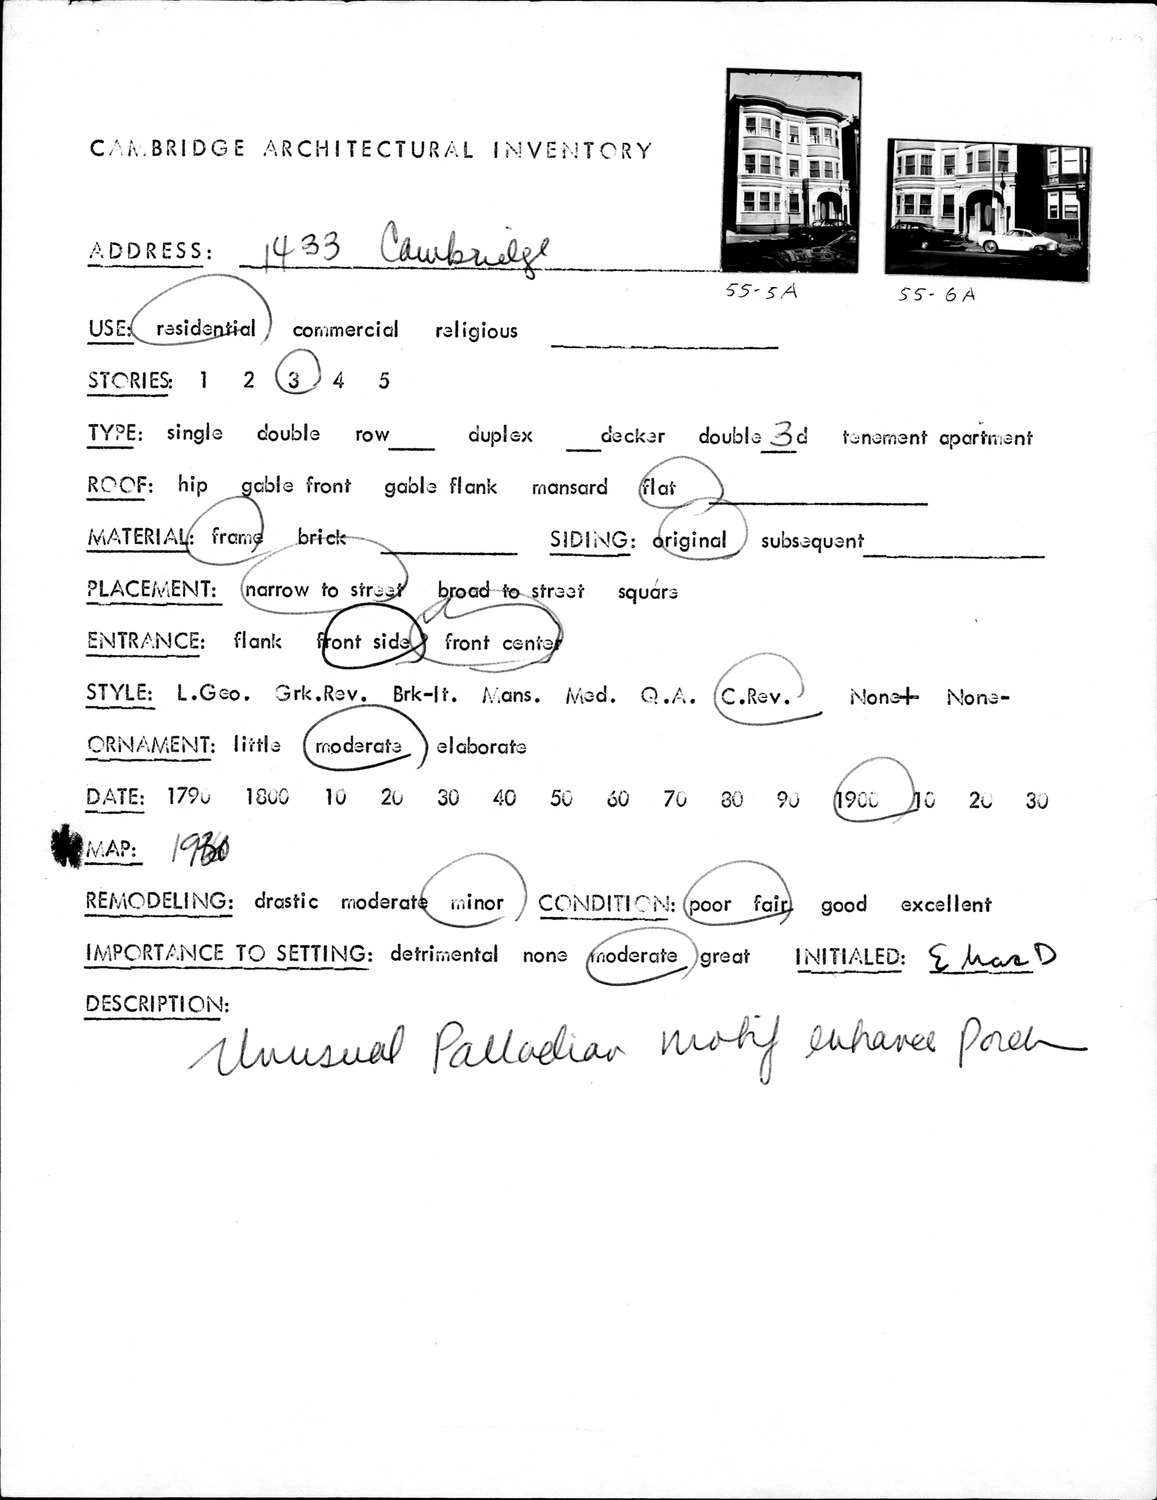 CAMBRIDGE ARCHITECTURAL INVENTORY
ADDRESS: 1433 Cambridge
55-5A
55-6A
USE: residential commercial religious
STORIES: 1 2 3 4 5
TYPE: single double row___ duplex ___decker double 3d tenement apartment
ROOF: hip gable front gable flank mansard flat
MATERIAL: frame brick ___ SIDING: original subsequent
PLACEMENT: narrow to street broad to street square
ENTRANCE: flank front side front center
STYLE: L.Geo. Grk.Rev. Brk-It. Mans. Med. Q.A. C.Rev. None+ None-
ORNAMENT: little moderate elaborate
DATE: 1790 1800 10 20 30 40 50 60 70 80 90 1900 10 20 30
MAP:
REMODELING: drastic moderate minor CONDITION: poor fair good excellent
IMPORTANCE TO SETTING: detrimental none moderate great INITIALED:
DESCRIPTION:
Unusual Palladian motif enhances Porch